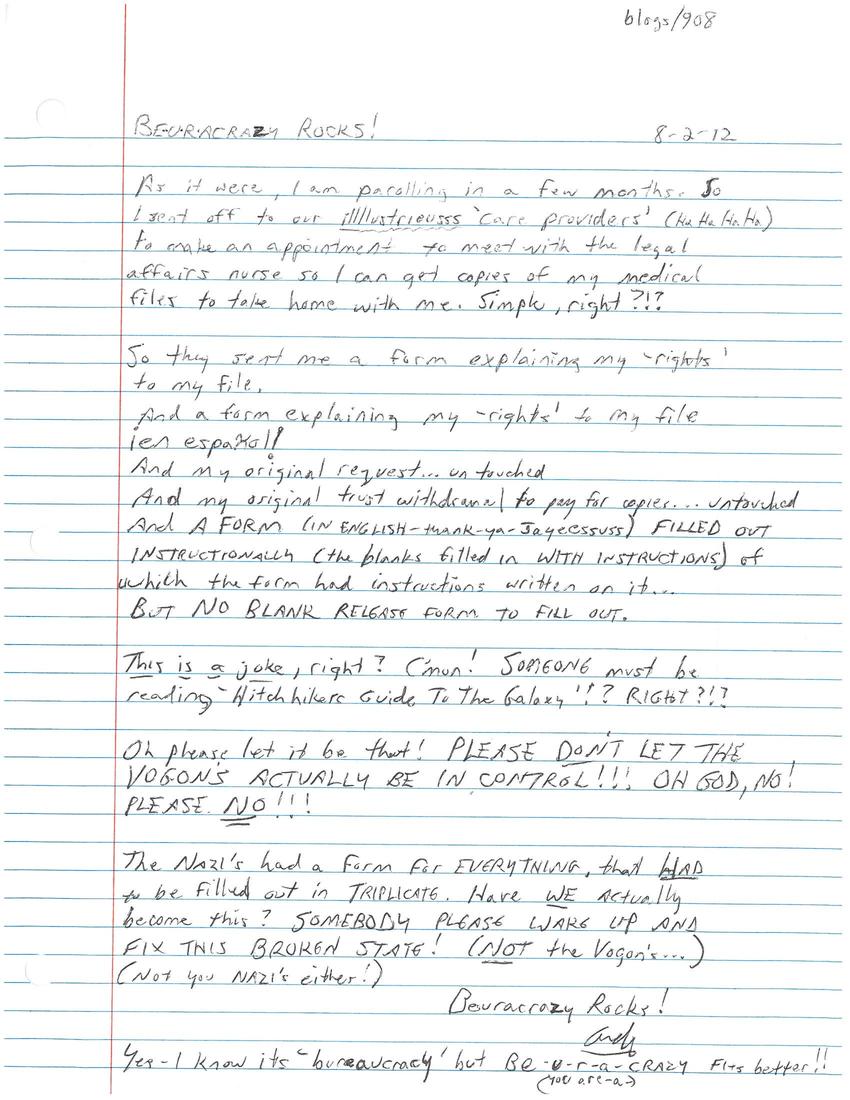 blogs/908
BE·U·R·ACRAZY ROCKS! 8-2-12
As it were, I am parolling in a few months. So
I sent off to our illllustrieusss 'care providers' (Ha Ha Ha Ha)
to make an appointment to meet with the legal
affairs nurse so I can get copies of my medical
files to take home with me. Simple, right?!?
So they sent me a form explaining my 'rights'
to my file.
And a form explaining my 'rights' to my file
¡en español!
And my original request... untouched
And my original trust withdrawal to pay for copies... untouched
And A FORM (IN ENGLISH-thank-ya-Jayeessuss) FILLED OUT
INSTRUCTIONALLY (the blanks filled in WITH INSTRUCTIONS) of
which the form had instructions written on it...
BUT NO BLANK RELEASE FORM TO FILL OUT.
This is a joke, right? C'mon! SOMEONE must be
reading 'Hitchhikers Guide To The Galaxy'!? RIGHT?!?
Oh please let it be that! PLEASE DON'T LET THE
VOGON'S ACTUALLY BE IN CONTROL!!! OH GOD, NO!
PLEASE NO!!!
The NAZI's had a form for EVERYTHING, that HAD
to be filled out in TRIPLICATE. Have WE Actually
become this? SOMEBODY PLEASE WAKE UP AND
FIX THIS BROKEN STATE! (NOT the Vogon's...)
(Not you NAZI's either!)
Beuracrazy Rocks!
Andy
Yes-I know its 'bureaucracy' but BE-U-R-A-CRAZY Fits better!!
(you are-a)